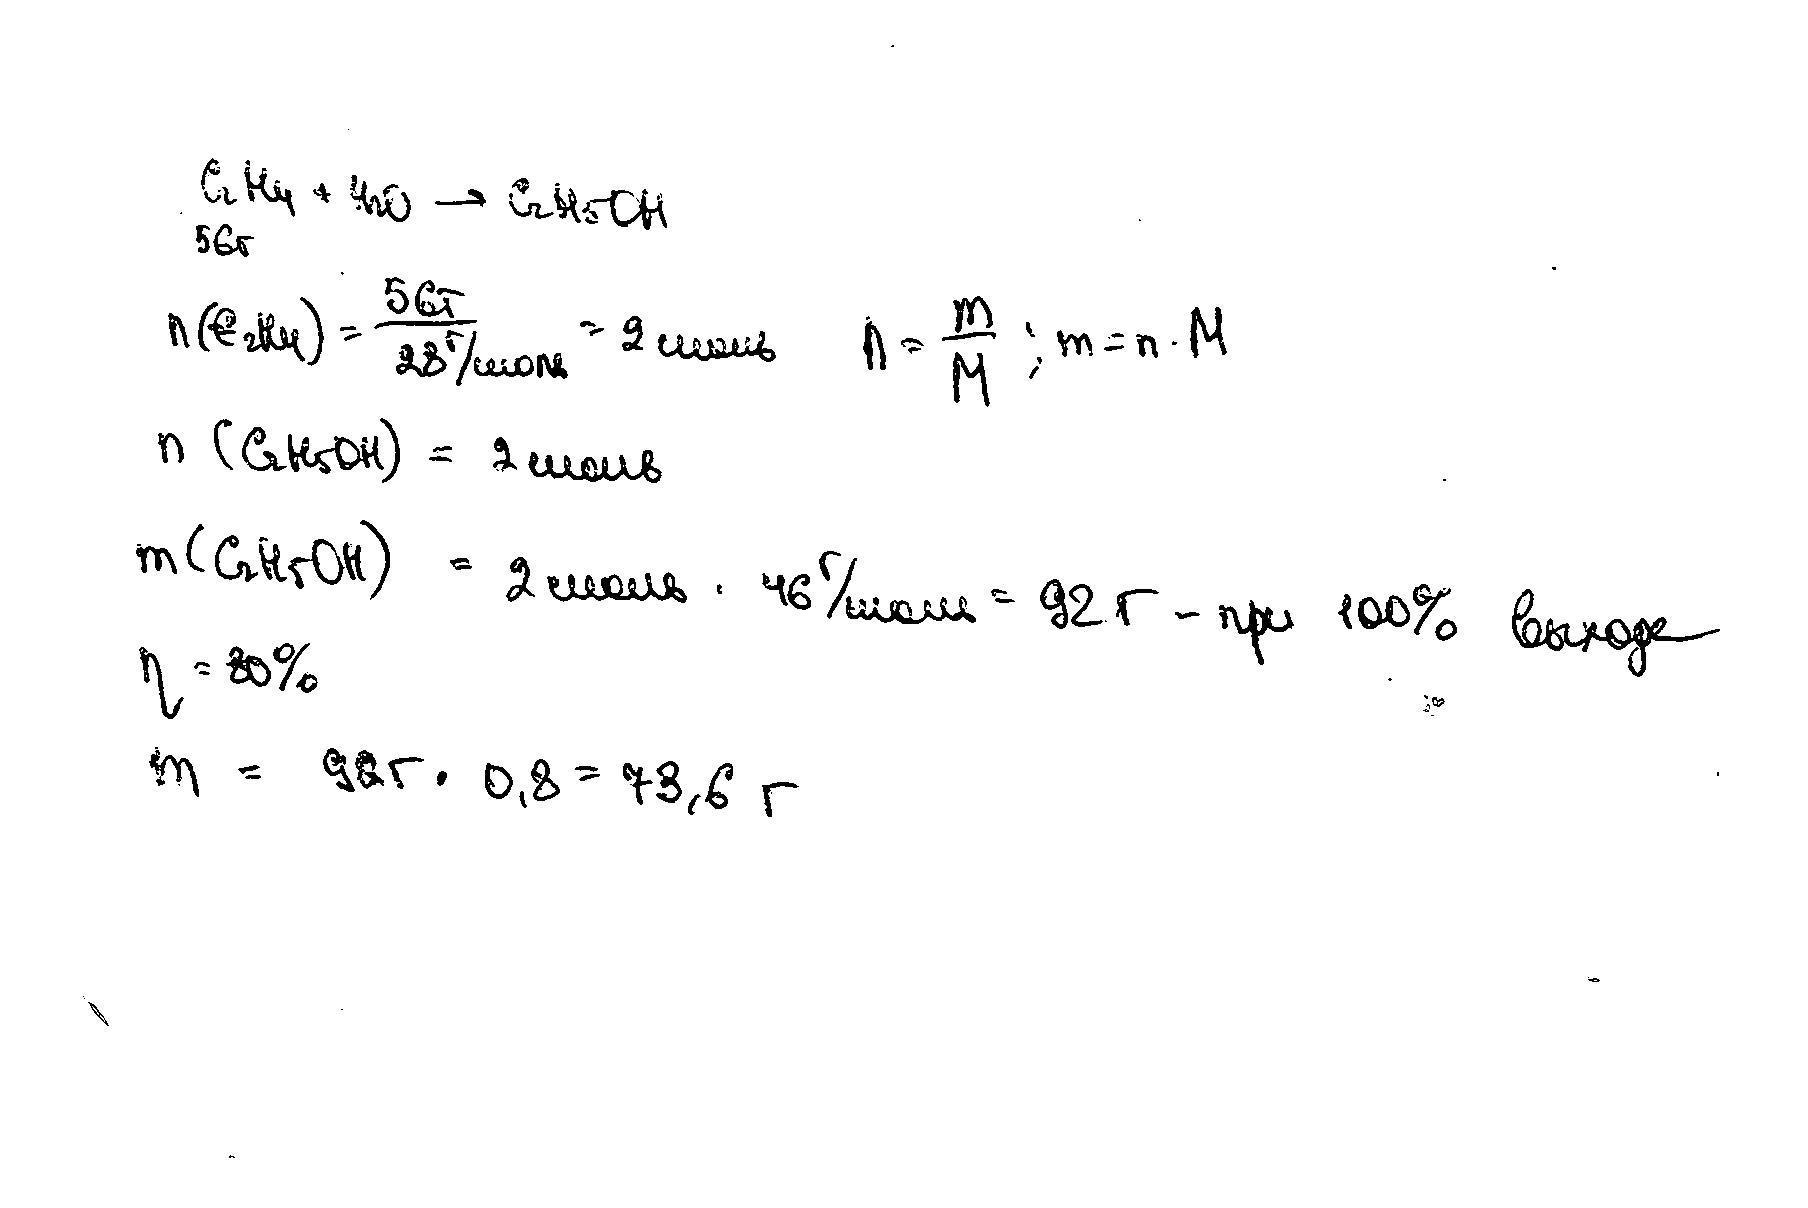 C₂H₄ + H₂O → C₂H₅OH
56г
n(C₂H₄) = 56г / 28 г/моль = 2 моль n = m / M ; m = n · M
n (C₂H₅OH) = 2 моль
m(C₂H₅OH) = 2 моль · 46 г/моль = 92 г - при 100% выходе
η = 80%
m = 92г · 0,8 = 73,6 г